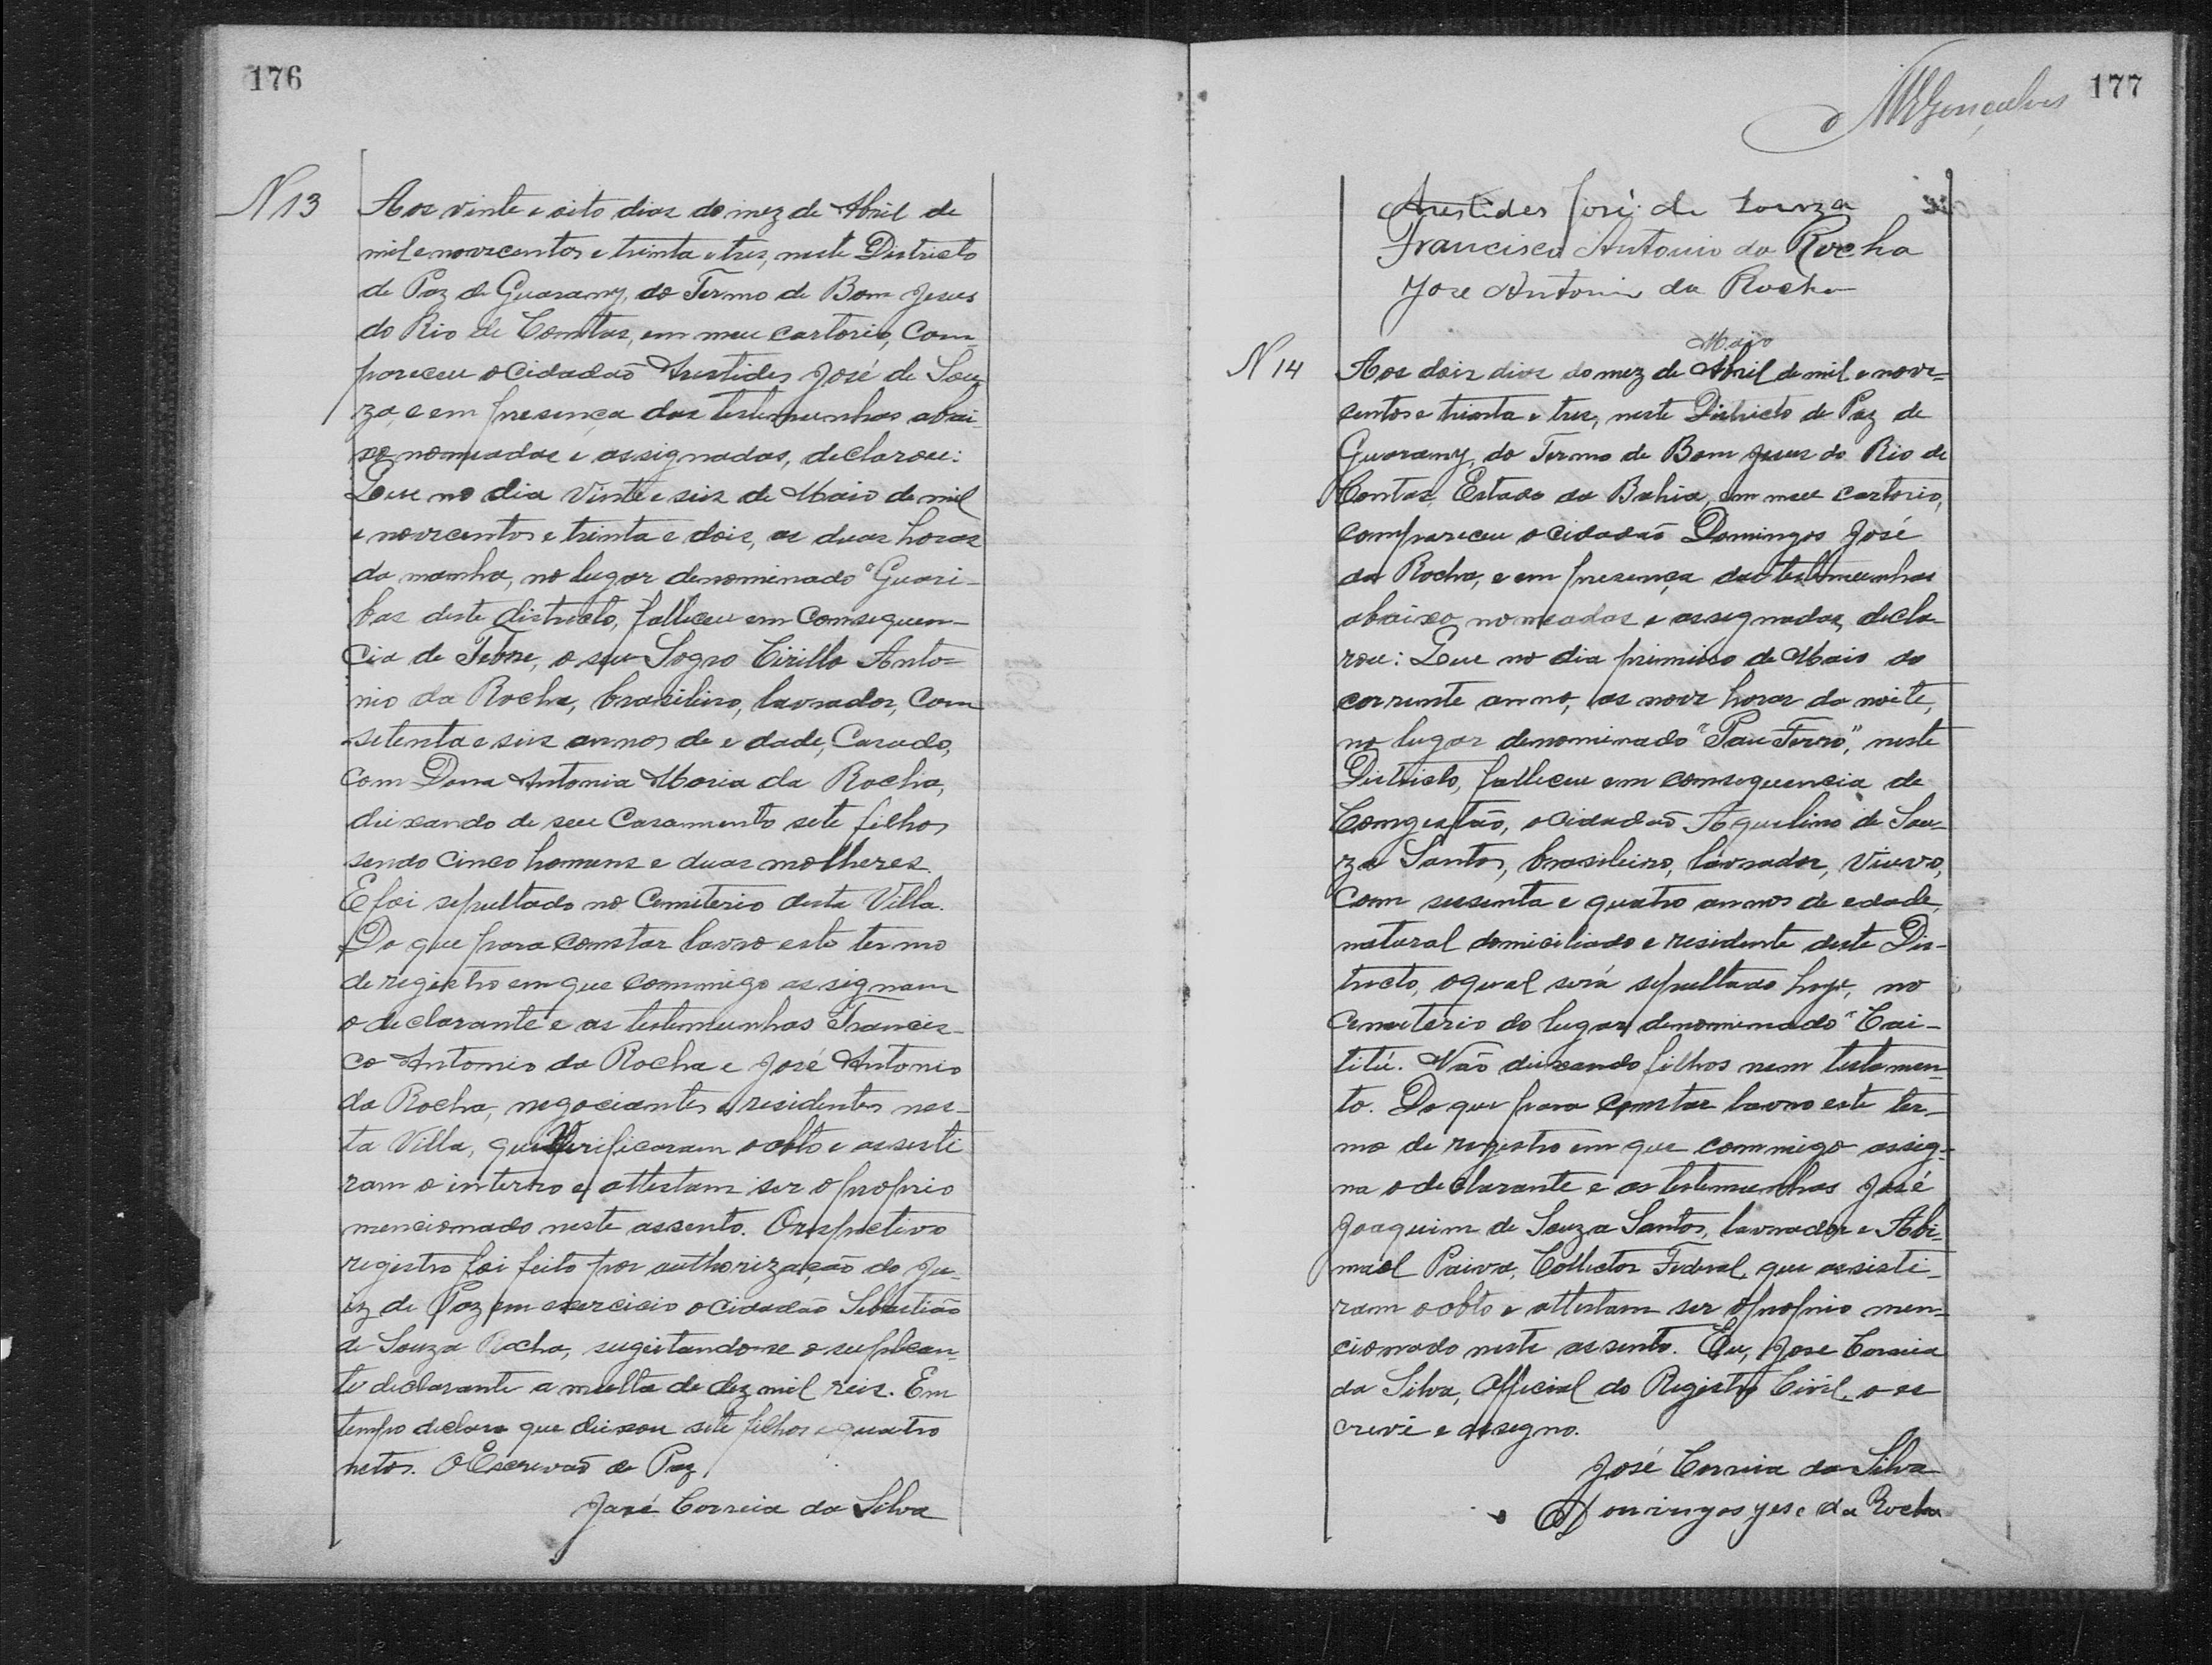 176
N 13
Aos vinte e oito dias do mez de Abril de
mil e novecentos e trinta e tres, neste Districto
de Paz de Guarany, do Termo de Bom Jesus
do Rio de Contas, em meu cartorio, com-
pareceu o cidadão Aristides José de Sou-
za, e em presença das testemunhas abai-
xo nomeadas e assignadas, declarou:
Que no dia vinte e seis de Maio de mil
e novecentos e trinta e dois, as duas horas
da manha, no lugar denominado "Guari-
bas deste districto, falleceu em consequen-
cia de Febre, o seu Sogro Cirillo Anto=
nio da Rocha, brasileiro, lavrador, com
setenta e seis annos de edade, Casado,
com Dona Antonia Maria da Rocha,
deixando de seu Casamento sete filhos
sendo cinco homens e duas molheres.
E foi sepultado no Cemiterio desta Villa.
Do que para constar lavro este termo
de registro em que commigo assignam
o declarante e as testemunhas Francis-
co Antonio da Rocha e José Antonio
da Rocha, negociantes e residentes nes-
ta Villa, que Verificaram o obto e assesti
ram o interro e attestam ser o proprio
mencionado neste assento. O respectivo
registro foi feito por authorização do Ju-
iz de Paz em exercicio o cidadão Sebastião
de Souza Rocha, sugeitando-se o suplican-
te declarante a multa de dez mil reis. Em
tempo declaro que deixou sete filhos e quatro
netos. O Escrevão de Paz
José Correia da Silva
177
MGonçalves
Aristides José de Souza
Francisco Antonio da Rocha
Jose Antonio da Rocha
N 14
Maio
Aos dois dias do mez de Abril de mil e nove-
centos e trinta e tres, neste Districto de Paz de
Guarany, do Termo de Bom Jesus do Rio de
Contas, Estado da Bahia, em meu cartorio,
compareceu o cidadão Domingos José
da Rocha, e em presença das testemunhas
abaixo nomeadas e assegnadas, decla-
rou: Que no dia primeiro de Maio do
corrente anno, as nove horas da noite,
no lugar denominado "Pau Ferro", neste
Districto, falleceu em consequencia de
Congestão, o cidadão Aquelino de Sou-
za Santos, brasileiro, lavrador, viuvo,
com sessenta e quatro annos de edade,
natural domiciliado e residente deste Dis-
tricto, o qual será sepultado hoje, no
Cemiterio do lugar denominado "Cai-
titú. Não deixando filhos nem testamen-
to. Do que para constar lavro este ter-
mo de registro em que commigo assig-
na o declarante e as testemunhas José
Joaquim de Souza Santos, lavrador e Abi-
mael Paiva, Collector Federal, que assisti-
ram o obto e attestam ser o proprio men-
cionado neste assento. Eu, Jose Correia
da Silva, Official do Registro Civil, o es
crevi e assegno.
José Correia da Silva
Domingos Jose da Rocha